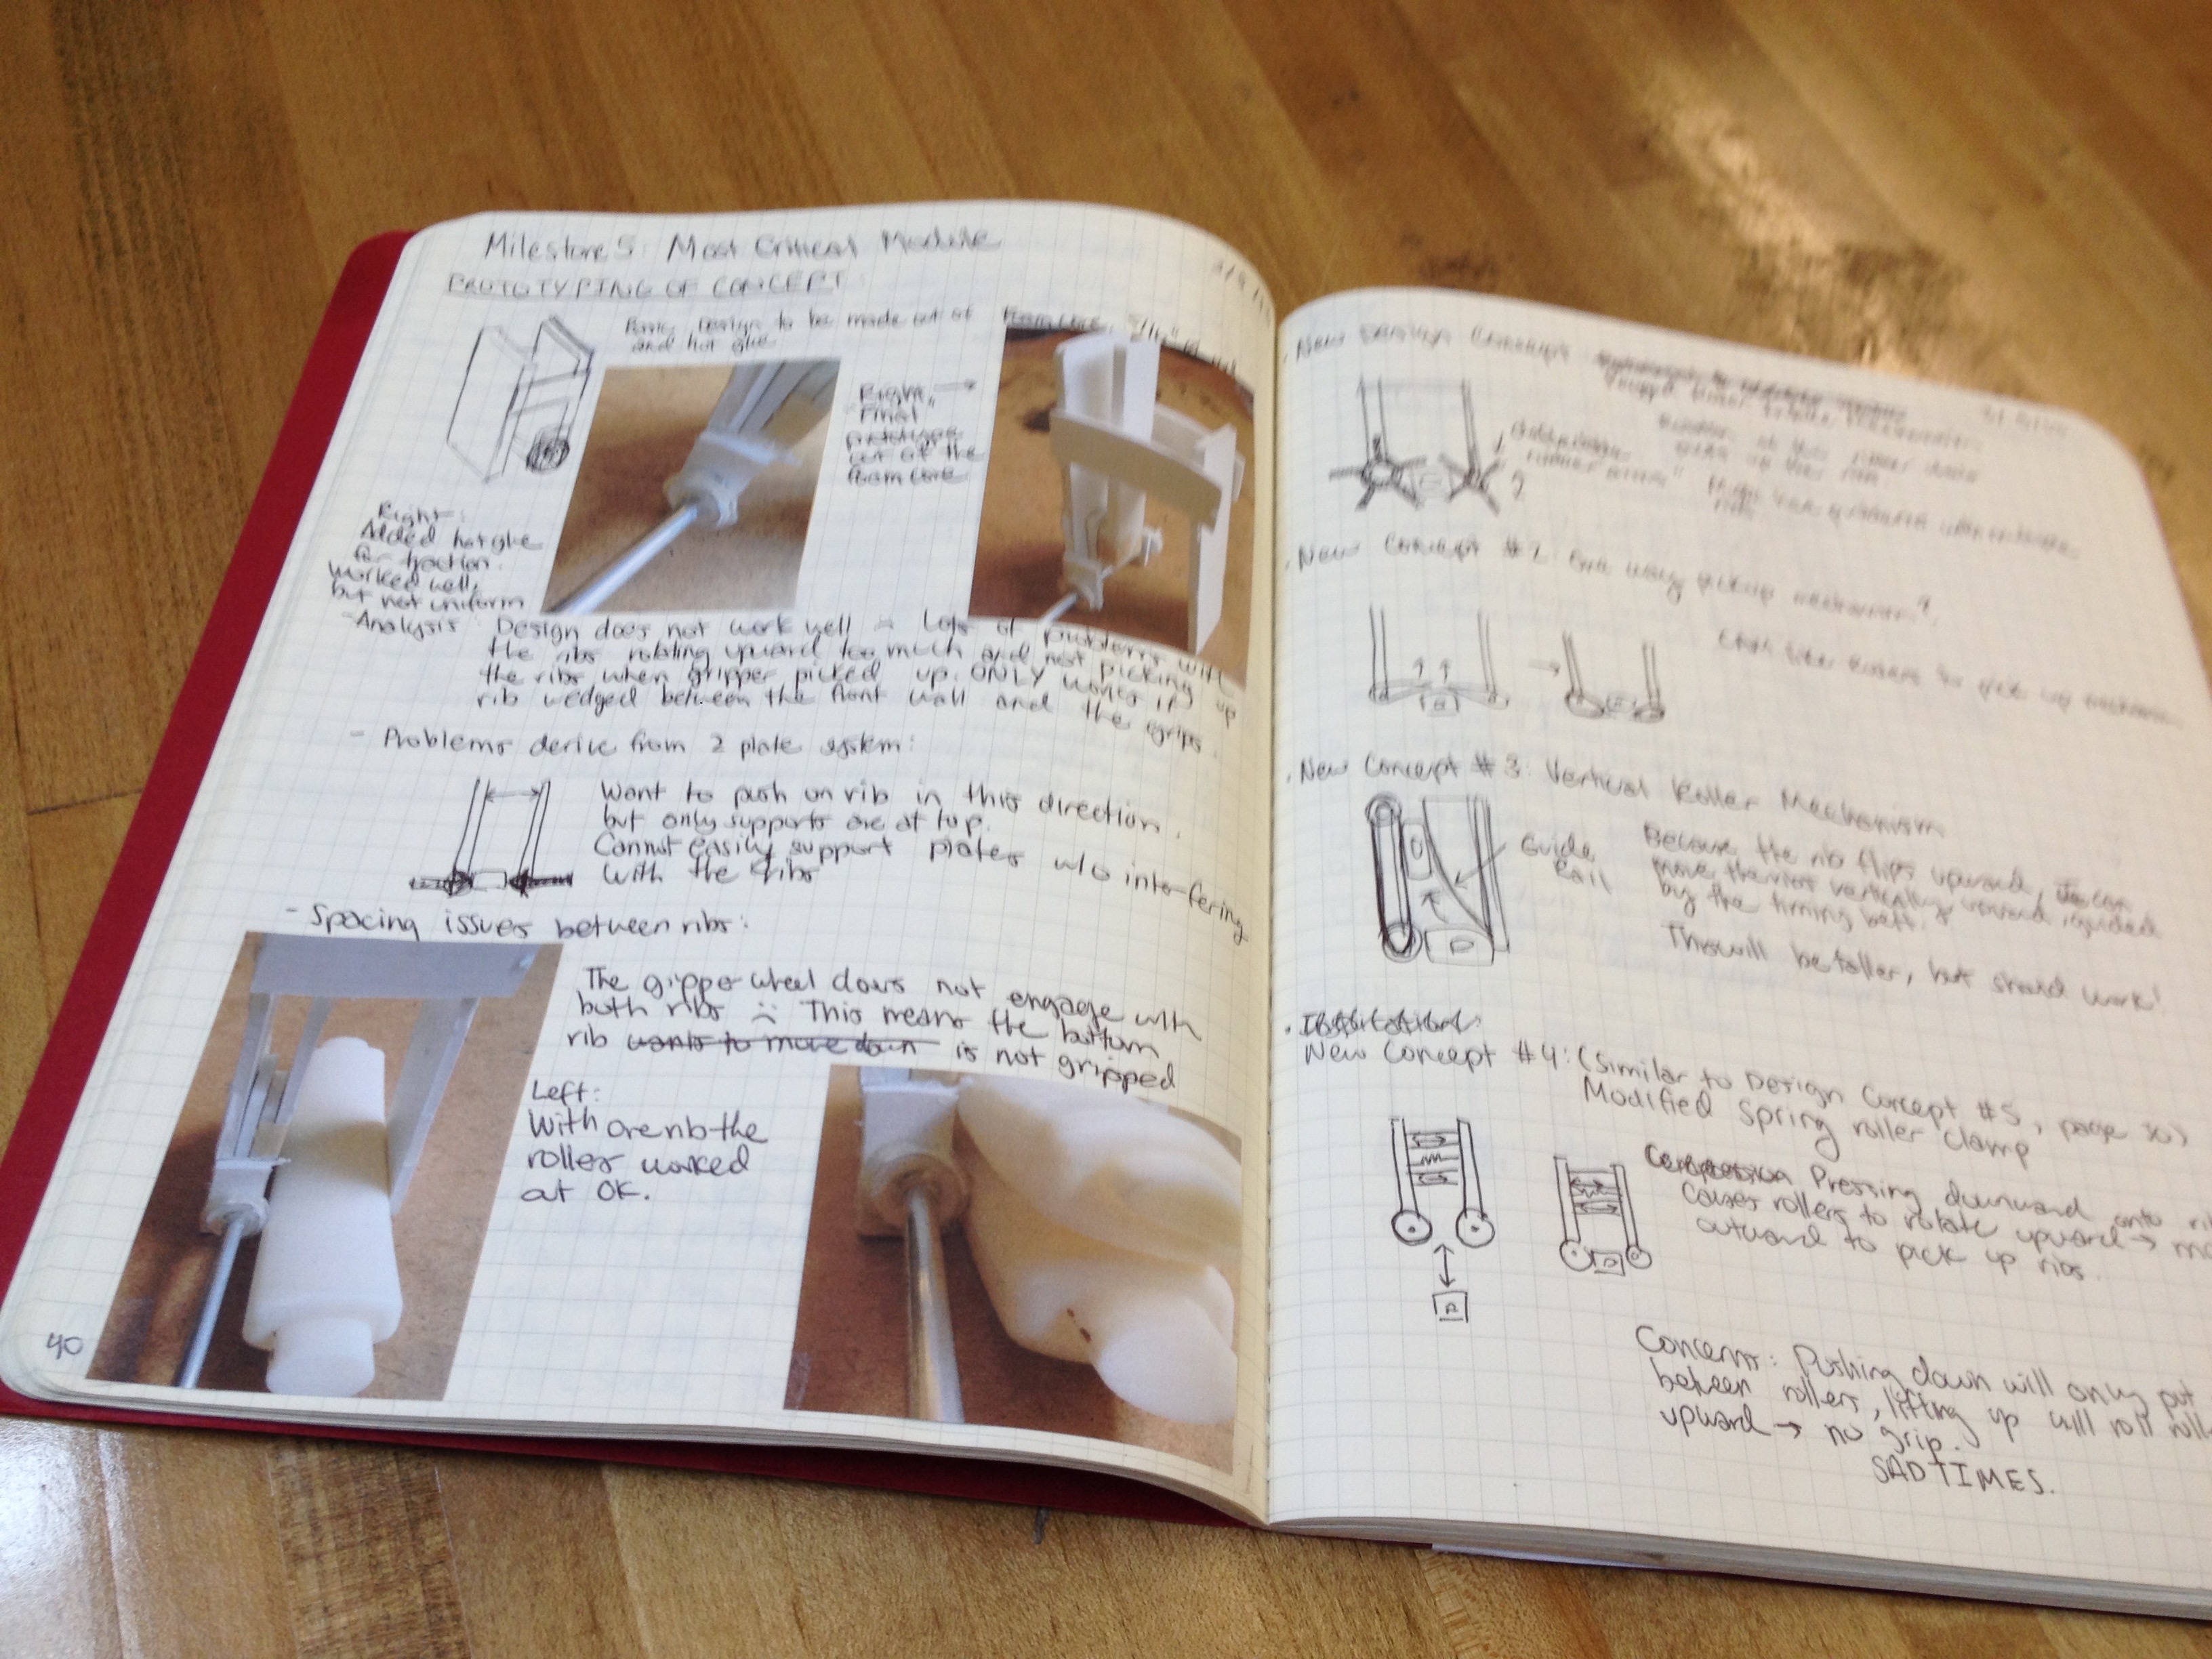 Milestone 5: Most Critical Module
PROTOTYPING OF CONCEPT
Basic Design to be made out of foam core
and hot glue
Right
"Final"
prototype
out of the
foam core
Right:
Added hot glue
for traction.
Worked well,
but not uniform
- Analysis: Design does not work well - Lots of problems with
the ribs rotating upward too much and not picking up
the ribs when gripper picked up. ONLY works if
rib wedged between the front wall and the grips.
- Problems derive from 2 plate system:
Want to push on rib in this direction,
but only supports are at top.
Cannot easily support plates w/o interfering
with the ribs
- Spacing issues between ribs:
The gripper wheel does not engage with
both ribs :( This means the bottom
rib wants to move down is not gripped
Left:
With one rib the
roller worked
out OK.
40
New Design Concept
rubber arms"
New Concept #2: One way pickup mechanism?
R
New Concept #3: Vertical Roller Mechanism
Guide
Rail
R
Because the rib flips upward, we can
move the ribs vertically upward guided
by the timing belt.
This will be taller, but should work!
New Concept #4: (Similar to Design Concept #5, page 36)
Modified Spring roller clamp
R
R
Compression Pressing downward onto
causes rollers to rotate upward →
outward to pick up ribs.
Concerns: Pushing down will only put
between rollers, lifting up will roll
upward → no grip.
SAD TIMES.